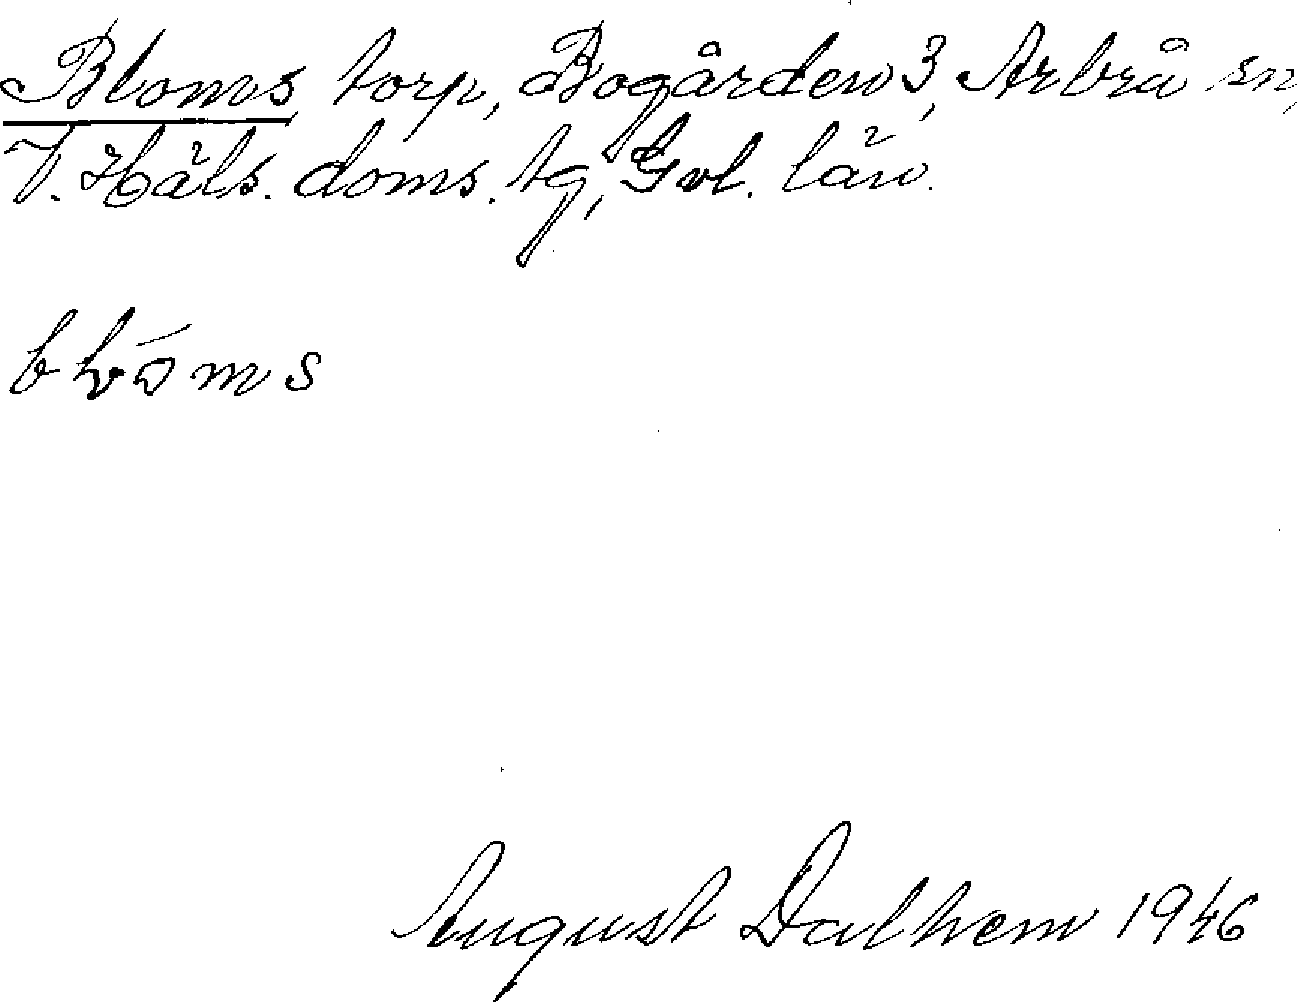 Bloms, torp, Bogården 3, Arbrå sn,
V. Häls. doms. tg, Gvl. län.
blóms
August Dalhem 1946